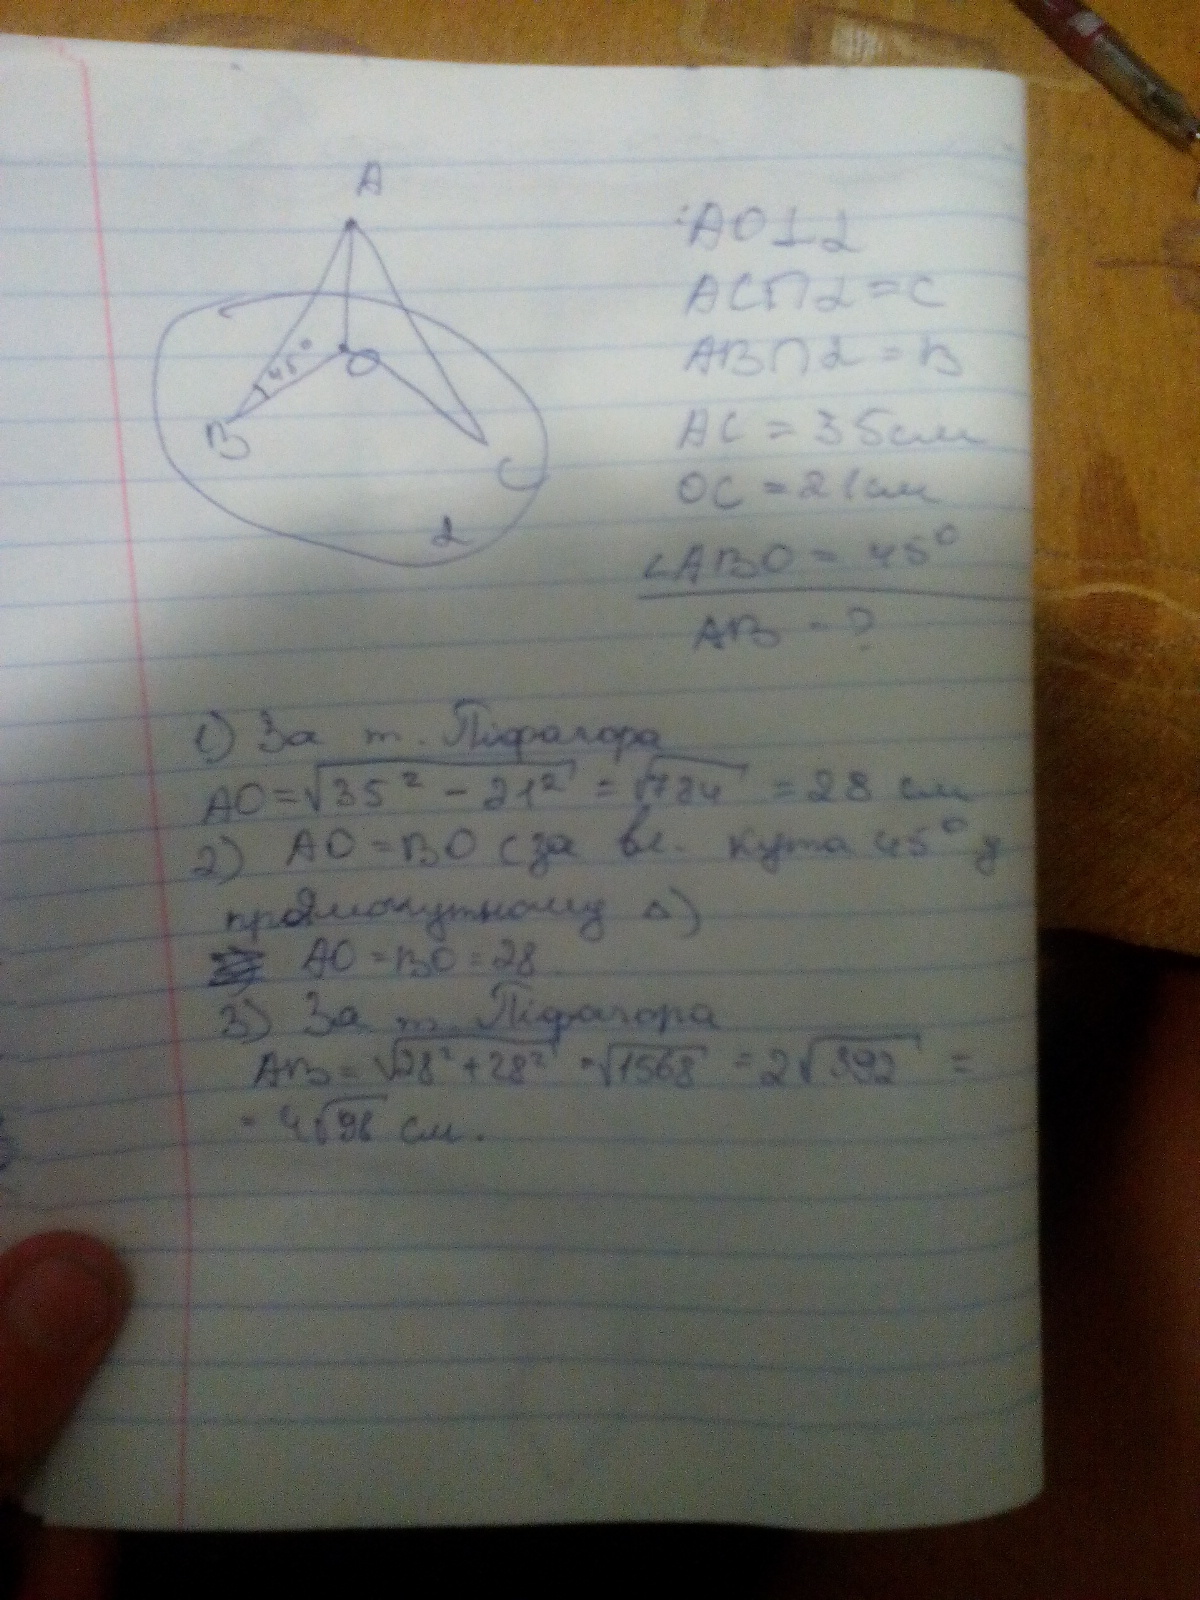 A
45°
O
B
C
α
AO⊥α
AC∩α=C
AB∩α=B
AC = 35см
OC = 21см
∠ABO = 45°
AB - ?
1) За т. Піфагора
AO=√35² - 21² = √784 = 28 см
2) AO = BO (за вл. кута 45° у
прямокутному Δ)
AO = BO = 28
3) За т. Піфагора
AB = √28² + 28² = √1568 = 2√392 =
= 4√98 см.